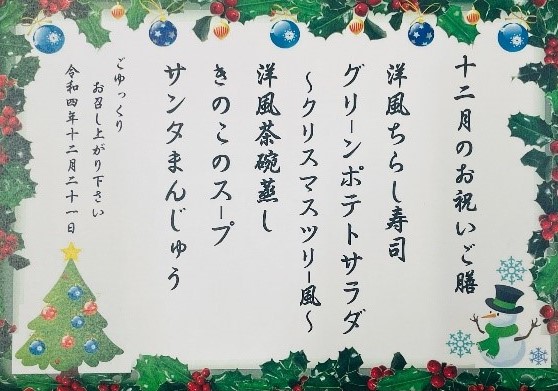 十二月のお祝いご膳
洋風ちらし寿司
グリーンポテトサラダ
～クリスマスツリー風～
洋風茶碗蒸し
きのこのスープ
サンタまんじゅう
ごゆっくり
お召し上がり下さい
令和四年十二月二十一日